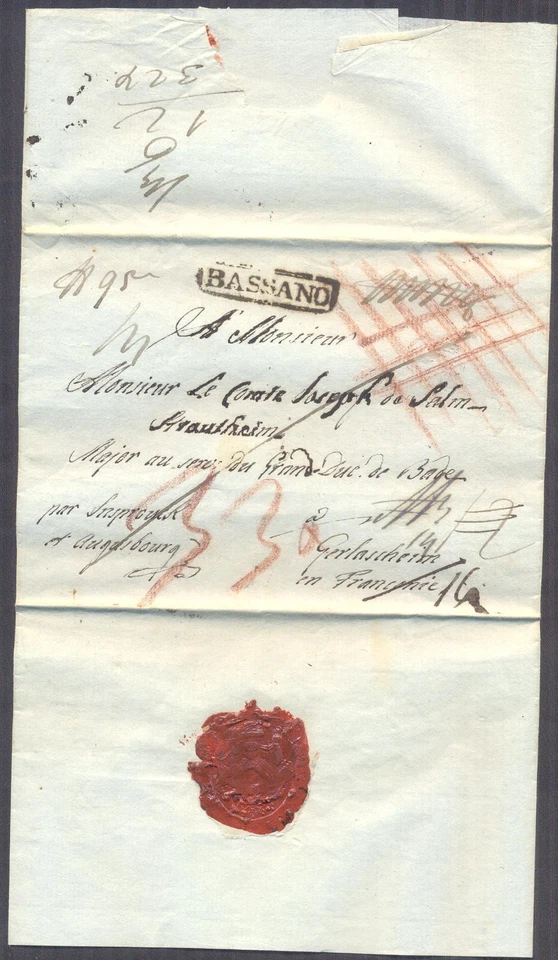 3 22
12
N 95
BASSANO
A Monsieur
Monsieur Le Comte Joseph de Salm
Krautheim
Major au serv: du Grand Duc. de Bade
par Insprouck à
et Augsbourg Gerlasheim
en Franconie 16
33